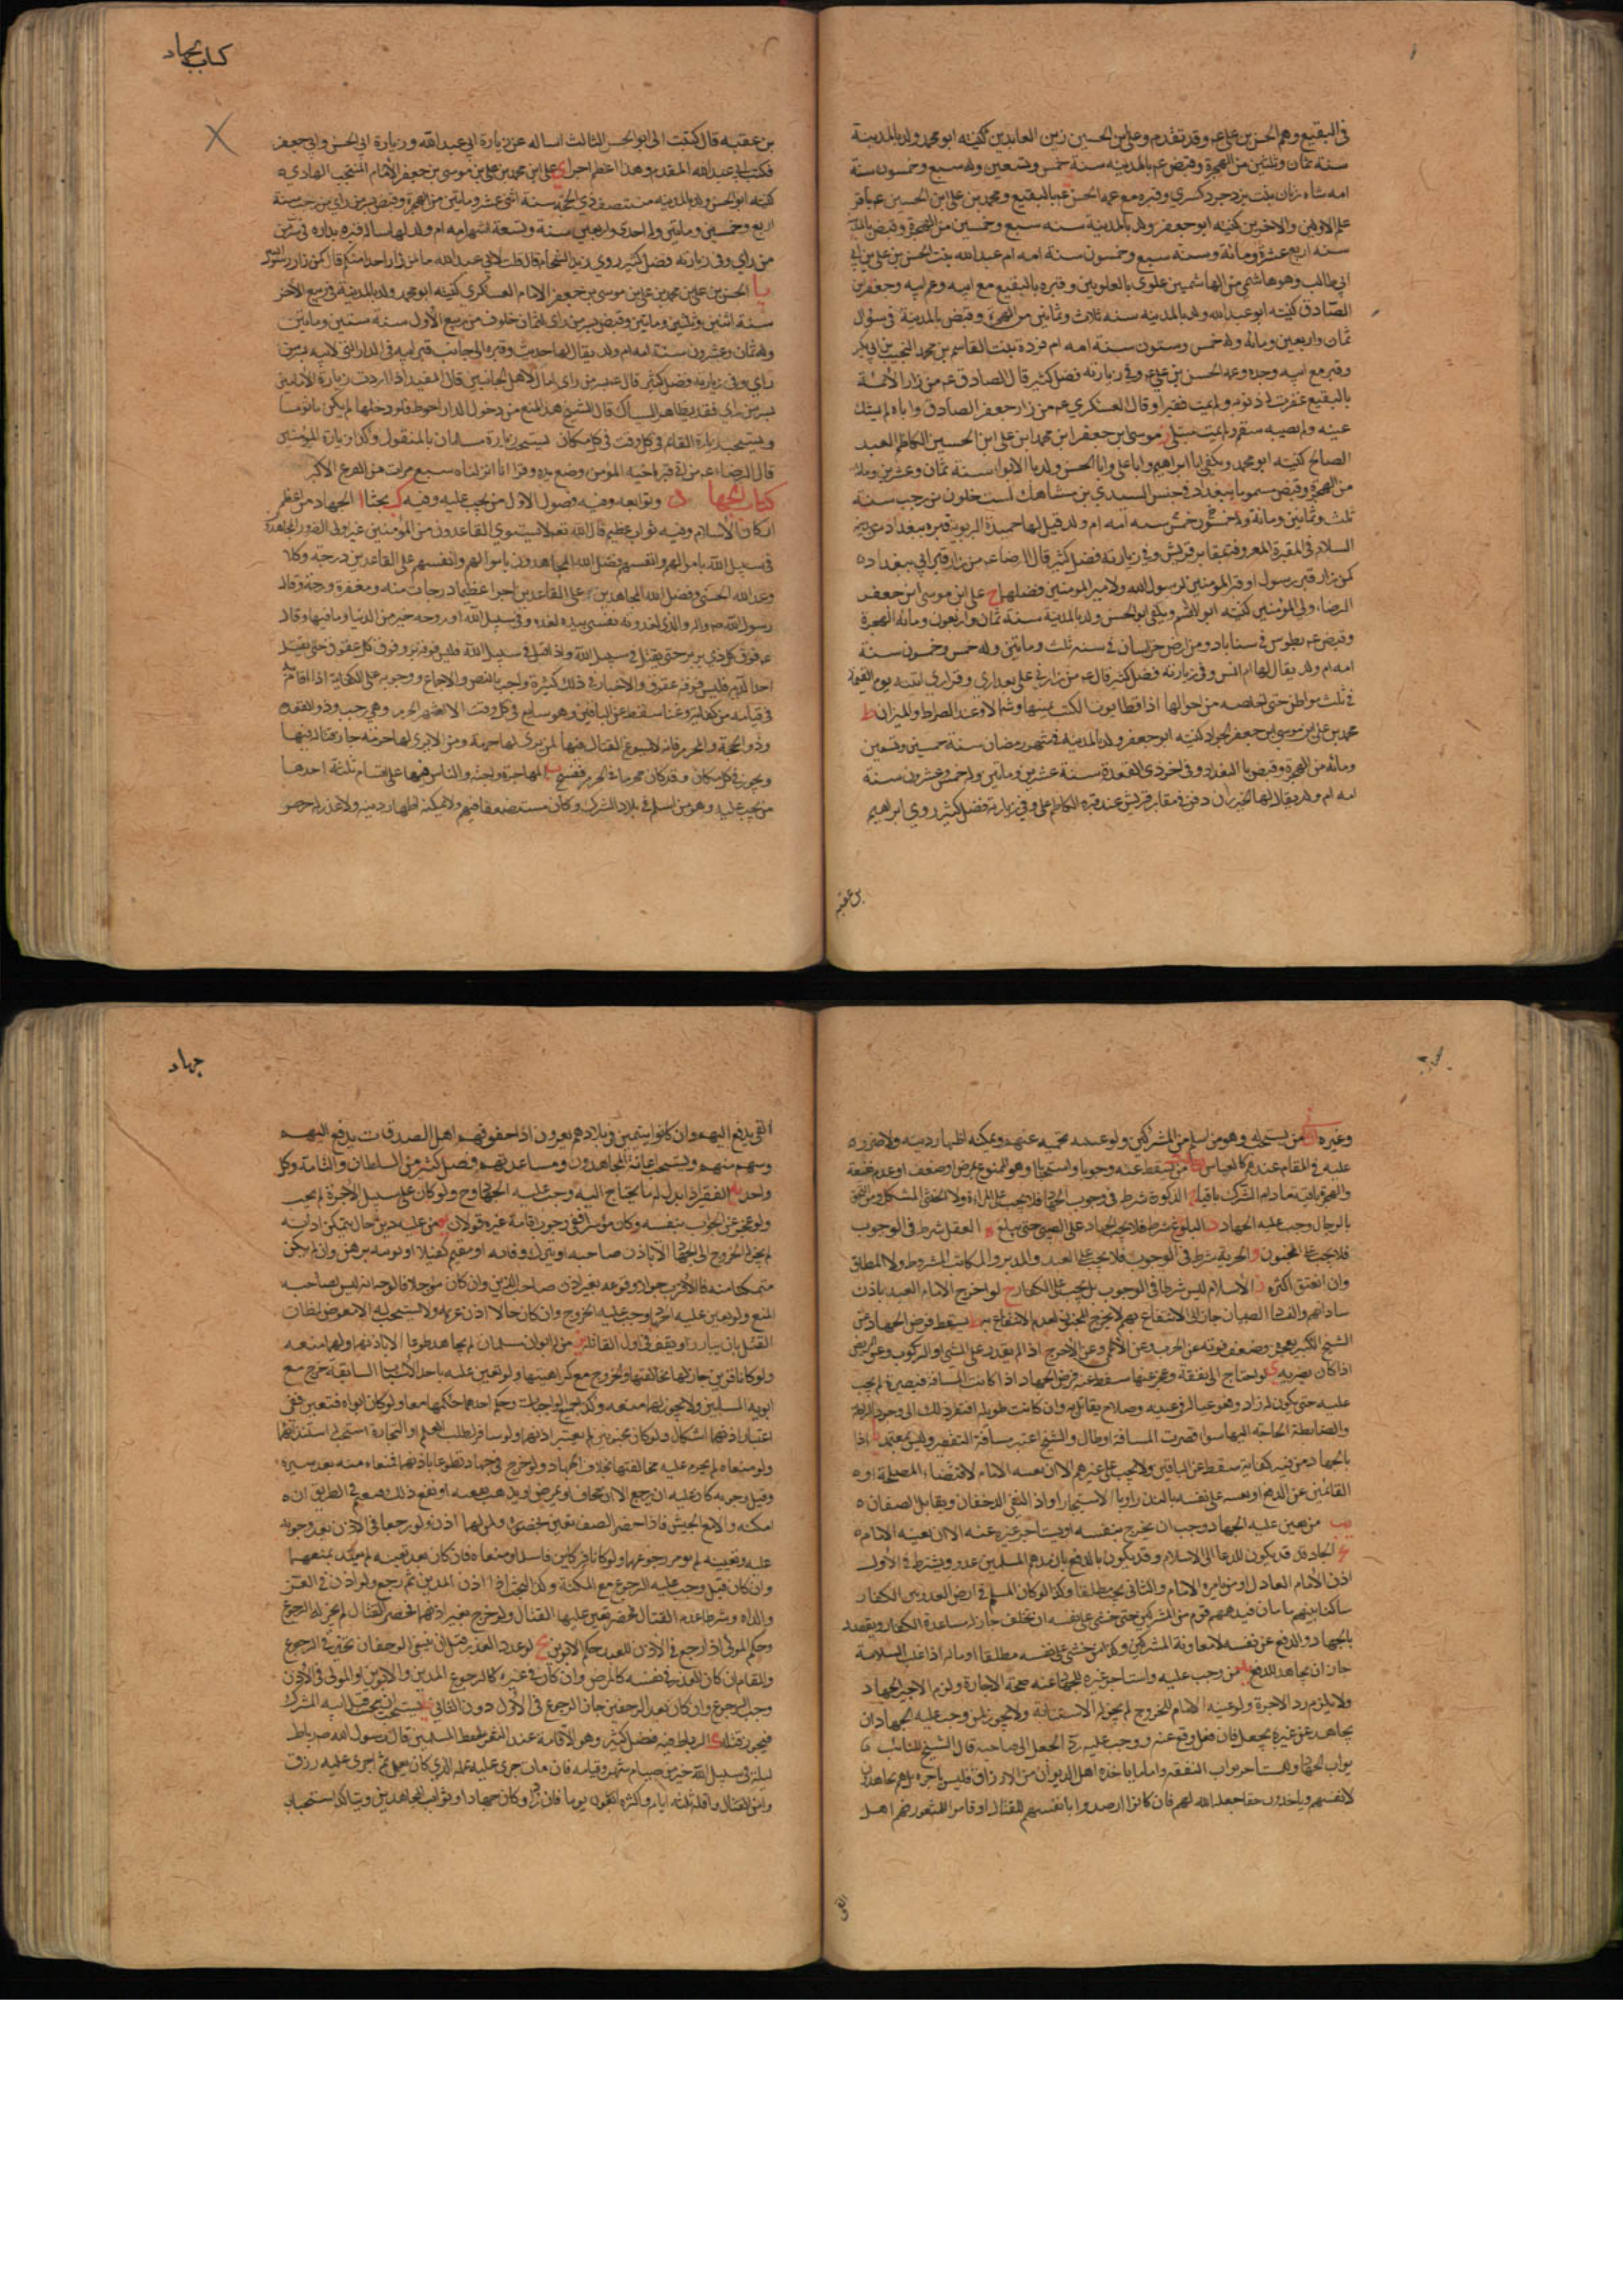 في البقيع وهم الحسن بن علي عم وقد تقدم وعلي بن الحسين زين العابدين كنيته ابو محمد ولد بالمدينة
سنة ثمان وثلثين من الهجرة وقبض عم بالمدينة سنة خمس وتسعين وله سبع وخمسون سنة
امه شاه زنان بنت يزدجرد كسرى وقبره مع عمه الحسن عم بالبقيع ومحمد بن علي ابن الحسين عم باقر
علم الاولين والاخرين كنيته ابو جعفر ولد بالمدينة سنه سبع وخمسين من الهجرة وقبض بالمدينة
سنه اربع عشرة ومائة وسنه سبع وخمسون سنة امه ام عبد الله بنت الحسن بن علي بن ابي
ابي طالب وهو هاشمي من الهاشميين علوي بالعلويين وقبره بالبقيع مع ابيه وعم ابيه وجعفر بن
الصادق كنيته ابو عبد الله ولد بالمدينه سنه ثلاث وثمانين من الهجرة وقبض بالمدينة في سؤال
ثمان واربعين ومائه وله خمس وستون سنة امه ام فروة بنت القاسم بن محمد النجيب بن ابي بكر
وقبره مع ابيه وجده وعمه الحسن بن علي عم وفي زيارته فضل كثير قال الصادق عم من زار الائمة
بالبقيع غفرت له ذنوبه ولم يمت فقيرا وقال العسكري عم من زار جعفر الصادق واباه لم يشك
عينه ولم يصبه سقم ولم يمت مبتلى ز موسى ابن جعفر ابن محمد ابن علي ابن الحسين الكاظم العبد
الصالح كنيته ابو محمد ويكنى ابا ابراهيم وابا علي وابا الحسن ولد بالابوا سنة ثمان وعشرين ومائة
من الهجرة وقبض مسموما ببغداد في حبس السندي بن شاهك لست خلون من رجب سنة
ثلث وثمانين ومائة وله خمس وخمسون سنه امه ام ولد قيل لها حميدة البربرية قبره ببغداد
السلام في المقبرة المعروفة بمقابر قريش وفي زيارته فضل كثير قال الرضا عم من زار قبر ابي ببغداد
كمن زار قبر رسول او قبر المؤمنين لرسول الله ولامير المؤمنين فضلهما ح علي ابن موسى ابن جعفر
الرضاء ولي المؤمنين كنيته ابو القسم ويكنى ابو الحسن ولد بالمدينة سنة ثمان واربعون ومائة الهجرة
وقبض عم بطوس في سناباد من ارض خراسان في سنه ثلث ومايتين وله خمس وخمسون سنة
امه ام ولد يقال لها ام البنين وفي زيارته فضل كثير قال عم من زارني على بعد داري وقراري اتيته يوم القيمة
في ثلث مواطن حتى اخلصه من احوالها اذا تطايرت الكتب يمينا وشمالا وعند الصراط والميزان ط
محمد بن علي ابن موسى ابن جعفر الجواد كنيته ابو جعفر ولد بالمدينة في شهر رمضان سنة خمسين وتسعين
ومائه من الهجرة وقبض ببا البغداد وفي اخر ذي القعدة سنة عشرين ومايتين وله خمس وعشرون سنة
امه ام ولد يقال لها الخيزران دفن في مقابر قريش عند قبره الكاظم علي وفي زيارته فضل كثير روي ابراهيم
بن عقبه
كتاب جهاد
بن عقبه قال كتبت الى ابو الحسن الثالث اساله عن زيارة ابي عبد الله وزيارة ابي الحسن وابي جعفر
فكتب ابي عبد الله المقدم وهذا اعظم اجرا ي علي ابن محمد بن علي بن موسى بن جعفر الامام المنتجب الهادي
كنيته ابو الحسن ولد بالمدينه منتصف ذي الحجة سنة اثني عشر ومايتين من الهجرة وقبض بسر من راى من رجب سنة
اربع وخمسين ومايتين وله احدى واربعين سنة وتسعة اشهر امه ام ولد لها سمانة قبره بداره في سر من
من راى وفي زيارته فضل كثير روي زيد الشحام قال قلت لابي عبد الله ما لمن زار احدا منكم قال كمن زار رسول الله
يا الحسن بن علي بن محمد بن علي بن موسى بن جعفر الامام العسكري كنيته ابو محمد ولد بالمدينة في ربيع الاخر
سنة اثنين وثلثين ومايتين وقبض بسر من راى لثمان خلون من ربيع الاول سنة ستين ومايتين
وله ثمان وعشرون سنة امه ام ولد يقال لها حديث وقبره الى جانب قبر ابيه في الدار التي لابيه بسر من
راى وفي زيارته فضل كثير قال عم قبري بسر من راى امان لاهل الجانبين قال المفيد اذا اردت زيارة الامامين
بسر من راى فقف بظاهر الشباك قال الشيخ هذا المنع من دخول الدار احوط ولو دخلها لم يكن ماثوما
ويستحب زيارة القائم في كل وقت في كل مكان يستحب زيارة سلمان بالمنقول وكذا زيارة المؤمنين
قال الرضاء عم من اتى قبر اخيه المؤمن وضع يده وقرا انا انزلناه سبع مرات امن الفزع الاكبر
كتاب الجهاد وتوابعه وفيه فصول الاول من يجب عليه وفيه ك بحثا ا الجهاد من اعظم
اركان الاسلام وفيه ثواب عظيم قال الله تعالى لا يستوي القاعدون من المؤمنين غير اولى الضرر والمجاهدون
في سبيل الله باموالهم وانفسهم فضل الله المجاهدون باموالهم وانفسهم على القاعدين درجة وكلا
وعد الله الحسنى وفضل الله المجاهدين على القاعدين اجرا عظيما درجات منه ومغفرة ورحمة وقال
رسول الله ص واله والذي نفسي بيده لغدوه في سبيل الله او روحه خير من الدنيا وما فيها وقال
عم فوق كل ذي بر بر حتى يقتل في سبيل الله واذا قتل في سبيل الله فليس فوقه بر وفوق كل عقوق حتى يقتل
احد والديه فليس فوقه عقوق والاخبار في ذلك كثيرة واجب بالنص والاجماع ووجوبه على الكفاية اذا قام
في قيامه من كفاية وغنا سقط عن الباقين وهو سايع في كل وقت الا الاشهر الحرم وهي رجب وذو القعده
وذو الحجة والمحرم فانه لا يسوغ القتال فيها لمن يرى لها حرمة ومن لا يرى لها حرمة جاز قتاله فيها
ويجوز في كل مكان وقد كان محرما في الحرم فنسخ ب المهاجرة واجبة والناس فيها على اقسام ثلثة احدها
من يجب عليه وهو من اسلم في بلاد الشرك وكان مستضعفا فيهم ولا يمكنه اظهار دينه ولا عذر له
جهاد
عليه في المقام عندهم كالعباس من يسقط عنه وجوبا واستحبابا وهو الممنوع بمرض او ضعف او عدم نفقة
والهجرة باقية مادام الشرك باقيا ج الذكورة شرط في وجوب الجهاد فلا يجب على المراة ولا الخنثى المشكل
بالرجال وجب عليه الجهاد د البلوغ شرط فلا يجب الجهاد على الصبي حتى يبلغ ه العقل شرط في الوجوب
فلا يجب على المجنون و الحرية شرط في الوجوب فلا يجب على العبد والمدبر والمكاتب المشروط ولا المطلق
وان انعتق اكثره ز الاسلام ليس شرطا في الوجوب بل يجب على الكفار ح لو اخرج الامام العبد باذن
ساداتهم والنساء الصبيان جاز للانتفاع بهم لا يخرج المجنون لعدم الانتفاع به ط يسقط فرض الجهاد عن
الشيخ الكبير بعجزه وضعف قوته عن الحرب وعن الاعمى وعن الاعرج اذا لم يقدر على المشي او الركوب وعن المريض
اذا كان يضر به ي لو احتاج الى نفقة وعجز عنها سقط عنه فرض الجهاد اذا كانت المسافة قصيرة لم يجب
بالجهاد من فيه كفاية سقط عن الباقين ولا يجب على غيرهم الا ان يعينه الامام لاقتضاء المصلحة او
القائمين عن الدفع او يعينه على نفسه بالنذر او بالاستيجار او اذا التقى الزحفان ويقابل الصفان
يب من يعين عليه الجهاد وجب ان يخرج بنفسه او يستاجر غيره عنه الا ان يعينه الامام
يج الجهاد قد يكون للدعا الى الاسلام وقد يكون بالدفع بان يدهم المسلمين عدو ويشترط في الاول
اذن الامام العادل او من يامره الامام والثاني يجب مطلقا وكذا لو كان المسلم في ارض العدو بين الكفار
ساكنا بينهم بامان فيدهمهم قوم من المشركين حتى خشي على نفسه ان تخلف جاز له مساعدة الكفار ويقصد
بالجهاد الدفع عن نفسه لا معاونة المشركين وكذا من خشي على نفسه مطلقا او ماله اذا غلب السلامة
جاز ان يجاهد للدفع يد من وجب عليه واستاجر غيره للجهاد عنه صحة الاجارة ولزم الاجير الجهاد
ولا يلزم رد الاجرة ولو عينه الامام للخروج لم يجز له الاستنابة ولا يجوز لمن وجب عليه الجهاد ان
يجاهد عن غيره بجعل فان فعل وقع عنه ووجب عليه رد الجعل الى صاحبه قال الشيخ للنائب
ثواب الجهاد وللمستاجر ثواب النفقه واما ما ياخذه اهل الديوان من الارزاق فليس باجره بل هم يجاهدون
لانفسهم وياخذون حقا جعل الله لهم فان كانوا ارصدوا بانفسهم للقتال او قاموا للثغور فهم اهل
الفي
جهاد
الفي يدفع اليهم وان كانوا مقيمين في بلادهم يغزون اذا خفوا فهم اهل الصدقات يدفع اليهم
وسهم منهم ويستحب اعانة المجاهدون ومساعدتهم وفضل كثير من السلطان والعامة وكل
واحد يه الفقير اذا بذل له ما يحتاج اليه وجب عليه الجهاد ولو كان على سبيل الاجرة لم يجب
ولو عجز عن الجهاد بنفسه وكان موسرا ففي وجوب اقامة غيره قولان يو من عليه دين حال يتمكن ادائه
لم يجز له الخروج الى الجهاد الا باذن صاحبه او يترك وفائه او يقيم كفيلا او يوثقه برهن وان لم يكن
المنع ولو تعين عليه الجهاد وجب عليه الخروج وان كان حالا اذن غريمه او لا ويستحب له ان لا يتعرض لمظان
القتل بان يبارز او يقف في اول القتال يز من له ابوان مسلمان لم يجاهد تطوعا الا باذنهما ولهما منعه
ولو كانا كافرين جاز له مخالفتهما والخروج مع كراهيتهما ولو تعين عليه باحد الاسباب السابقة خرج مع
ابويه المسلمين ولا يجوز لهما منعه وكذا جميع الواجبات وحكم احدهما حكمهما معا ولو كان ابواه رقيقين ففي
اعتبار اذنهما اشكال ولو كانا مجنونين لم يعتبر اذنهما ولو سافر لطلب العلم او التجارة استحب له استئذانهما
ولو منعاه لم يحرم عليه مخالفتهما بخلاف الجهاد ولو خرج في جهاد تطوعا باذنهما فمنعاه منه بعد سيره
وقبل وجوبه كان عليه ان يرجع الا ان يخاف او يمرض او يذهب نفقته
امكنه والا مع الجيش فاذا حضر الصف تعين بحضوره ولم يبق لهما اذن ولو رجعا في الاذن بعد وجوبه
عليه وتعيينه لم يؤمر برجوعه
وان كان قبل وجب عليه الرجوع مع المكنة وكذا البحث اذا اذن المدين ثم رجع ولو اذن في الغزو
والداه وشرطا عدم القتال فحضر تعين عليه القتال ولو خرج بغير اذنهما فحضر القتال لم يجز له الرجوع
وحكم المولى اذا رجع في الاذن للعبد حكم الابوين يح لو تجدد العذر قبل ان يلتقى الزحفان تخير في الرجوع
والمقام ان كان العذر في نفسه كالمرض وان كان في غيره كالرجوع المدين والابوين او المولى في الاذن
وجب الرجوع وان كان بعد الزحفين جاز الرجوع في الاول دون الثاني يط يستحب ان يتجنب قتل ابيه المشرك
فيجوز قتله ك الرباط فيه فضل كثير وهو الاقامة عند الثغر لحفظ المسلمين قال رسول الله ص رباط
ليلة في سبيل الله خير من صيام شهر وقيامه فان مات جرى عليه عمله الذي كان يعمل واجرى عليه رزقه
وامن القتال واقله ثلثه ايام واكثره اربعون يوما فان زاد كان جهادا وثوابه ثواب المجاهدين ويتاكد استحباب